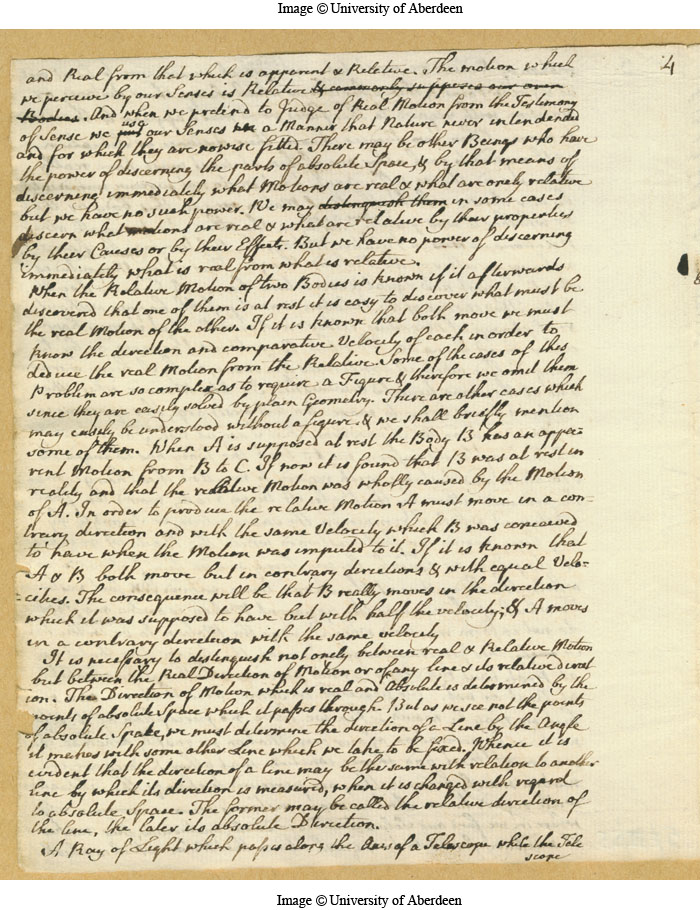 Image © University of Aberdeen
4
and Real from that which is apparent & Reletive. The motion which
we perceive by our Senses is Relative & commonly supposes our own
Bodies. And when we pretend to Judge of Real Motion from the Testimony
of Sense we use our Senses in a Manner that Nature never intendended
and for which they are nowise fitted. There may be other Beings who have
the power of discerning the parts of absolute Space, & by that means of
discerning immediately what Motions are real & what are onely relative
but we have no such power. We may distinguish them in some cases
discern what motions are real & what are relative by their properties
by their Causes or by their Effects. But we have no power of discerning
immediately what is real from what is relative.
When the Relative Motion of two Bodies is known if it afterwards
discovered that one of them is at rest it is easy to discover what must be
the real Motion of the other. If it is known that both move we must
know the direction and comparative Velocity of each in order to
deduce the real Motion from the Relative. Some of the cases of this
Problem are so complex as to require a Figure & therefore we omit them
since they are easily solved by plain Geometry. There are other cases which
may easily be understood without a figure & we shall briefly mention
some of them. When A is supposed at rest the Body B has an appa-
rent Motion from B to C. If now it is found that B was at rest in
reality and that the relative Motion was wholly caused by the Motion
of A. In order to produce the relative Motion A must move in a con-
trary direction and with the same Velocity which B was conceived
to have when the Motion was imputed to it. If it is known that
A & B both move but in contrary directions & with equal Velo-
cities. The consequence will be that B really moves in the direction
which it was supposed to have but with half the velocity; & A moves
in a contrary direction with the same velocity
It is necessary to distinguish not onely between real & Relative Motion
but between the Real Direction of Motion or of any line & its relative direct
ion. The Direction of Motion which is real and Absolute is determined by the
points of absolute Space which it passes through. But as we see not the points
of absolute Space, we must determine the direction of a Line by the Angle
it makes with some other Line which we take to be fixed. Whence it is
evident that the direction of a line may be the same with relation to another
line by which its direction is measured, when it is changed with regard
to absolute Space. The former may be called the relative direction of
the line, the later its absolute Direction.
A Ray of Light which passes along the Axis of a Telescope while the Tele
scope
Image © University of Aberdeen